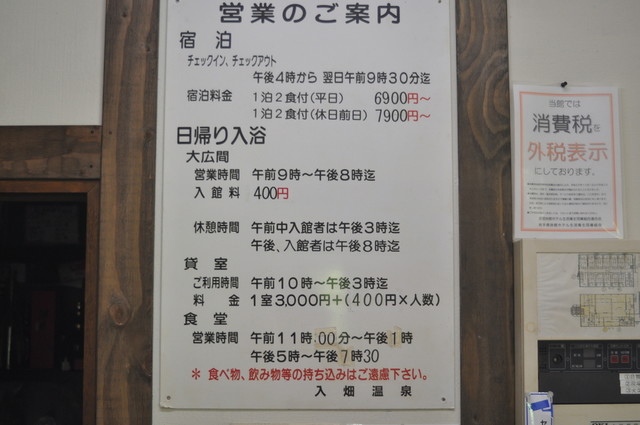 営業のご案内
宿 泊
チェックイン、チェックアウト
午後4時から 翌日午前9時30分迄
宿泊料金 1泊2食付(平日) 6900円~
1泊2食付(休日前日) 7900円~
日帰り入浴
大広間
営業時間 午前9時~午後8時迄
入館料 400円
休憩時間 午前中入館者は午後3時迄
午後、入館者は午後8時迄
貸 室
ご利用時間 午前10時~午後3時迄
料 金 1室3,000円+(400円×人数)
食 堂
営業時間 午前11時:00分~午後1時
午後5時~午後7時30
* 食べ物、飲み物等の持ち込みはご遠慮下さい。
入 畑 温 泉
当館では
消費税を
外税表示
にしております。